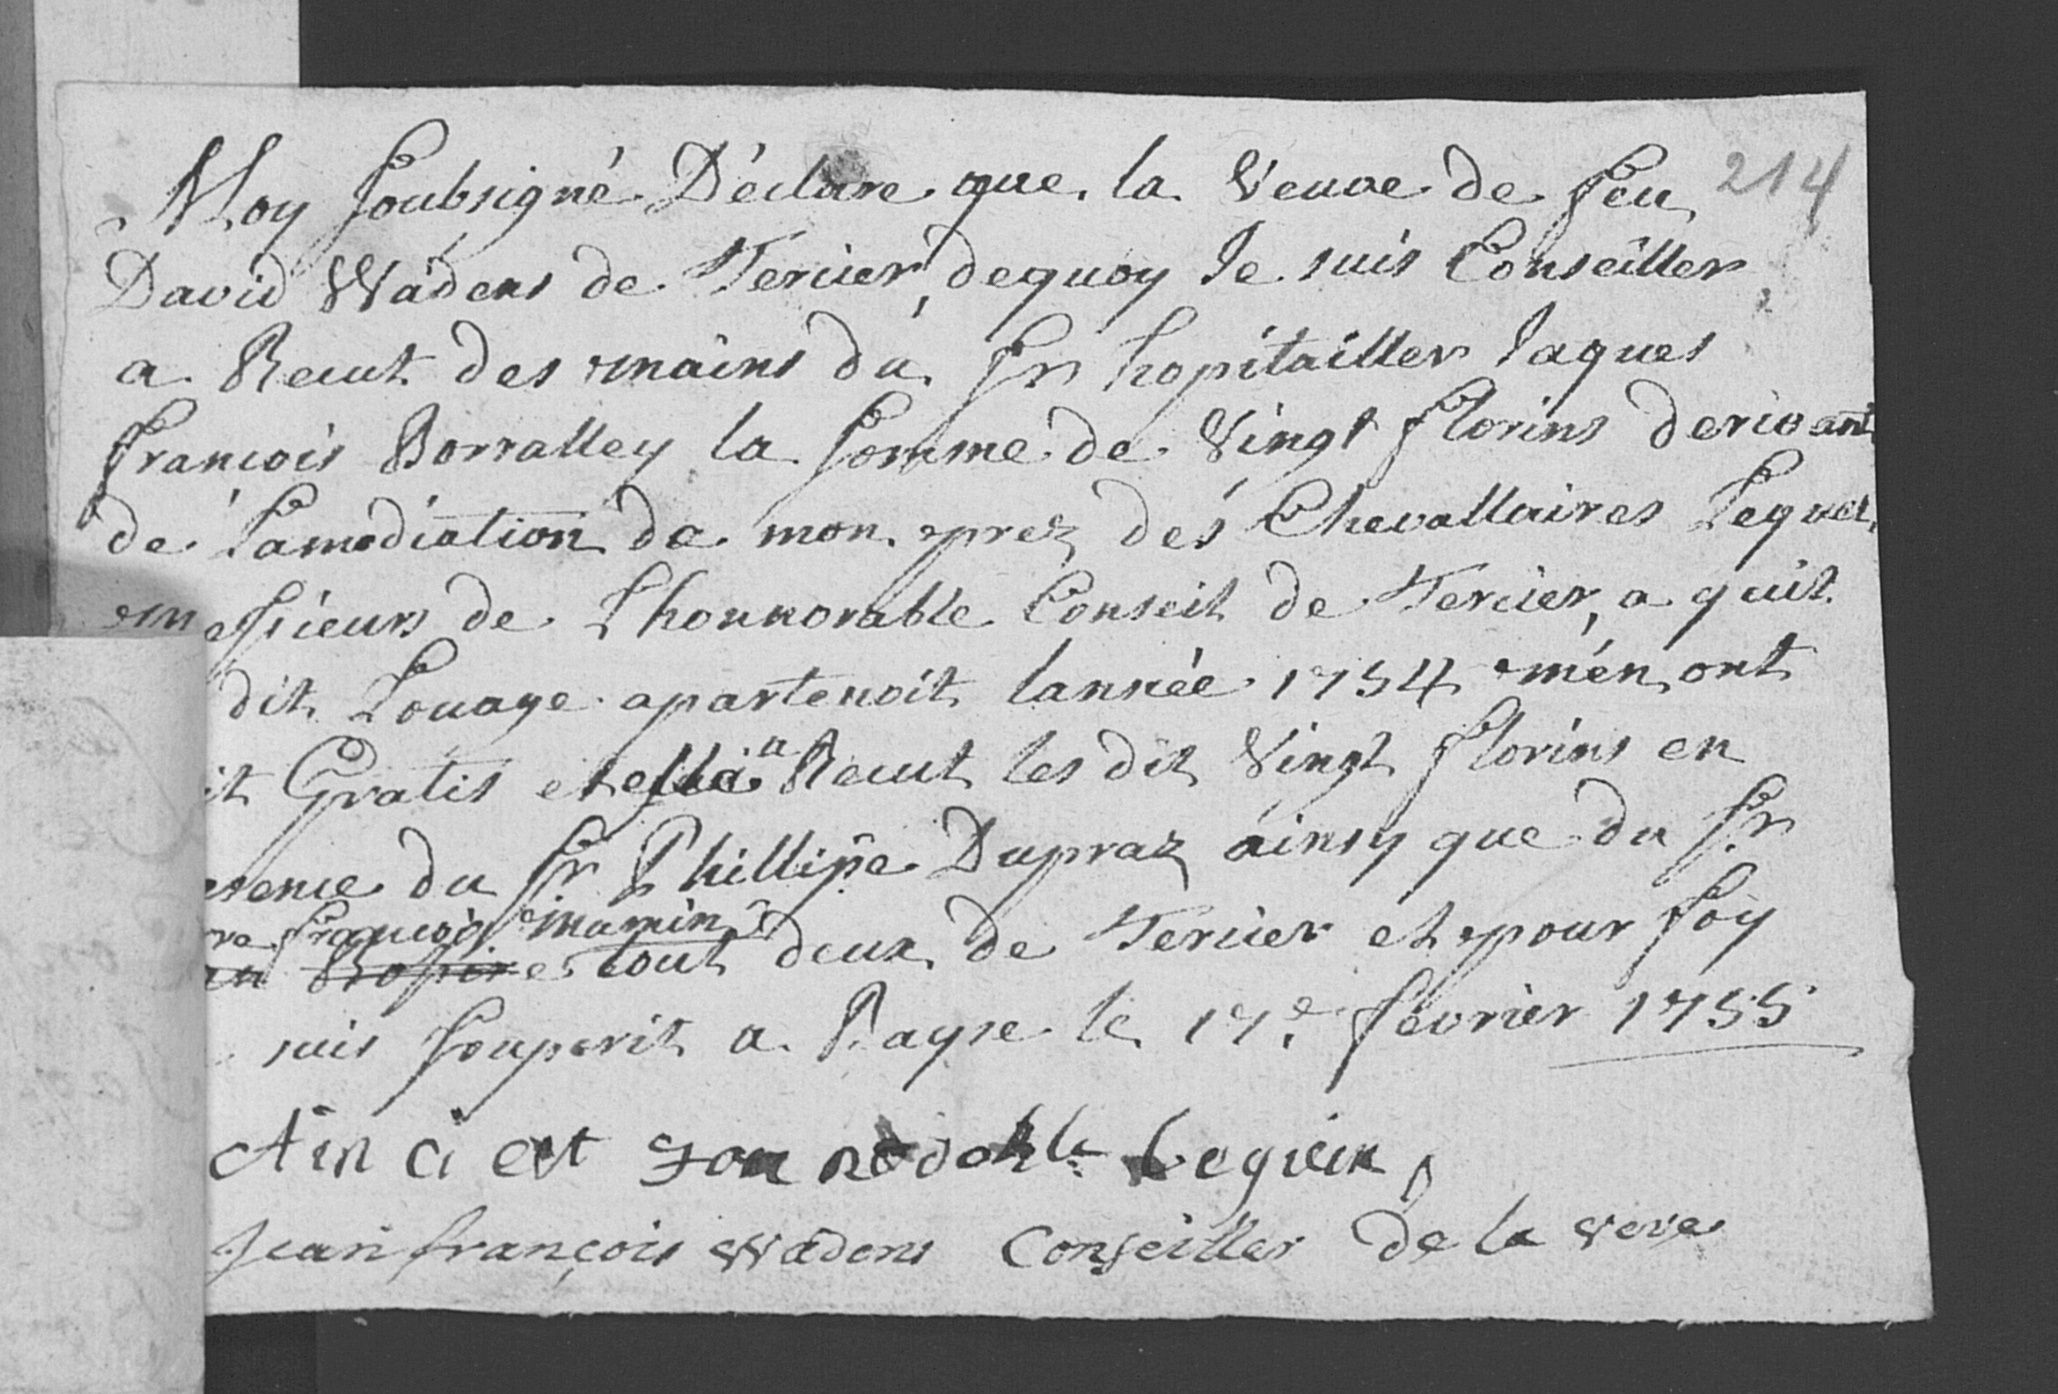 214
Moy soubsigné Déclare que la Veuve de feu
David Wadens de Tercier, dequoy Je suis Conseiller
a Recut des mains du Sr hopitailler Jaques
françois Borralley la somme de Vingt florins derivant
de Lamodiation de mon prez des Chevallaires Lequel
messieurs de Lhonnorable Conseil de Tercier, a quit
dit Louage apartenoit lannée 1754 mén ont
it Gratis et elle a Recut les dit Vingt florins en
esence du Sr Phillipe Dupraz ainsy que du Sr
re françois mamin
tout deux de Tercier et pour foy
suis souscrit a Bayse le 17e fevrier 1755
Ain ci est son Leguin
Jean françois Wadens Conseiller de la veve